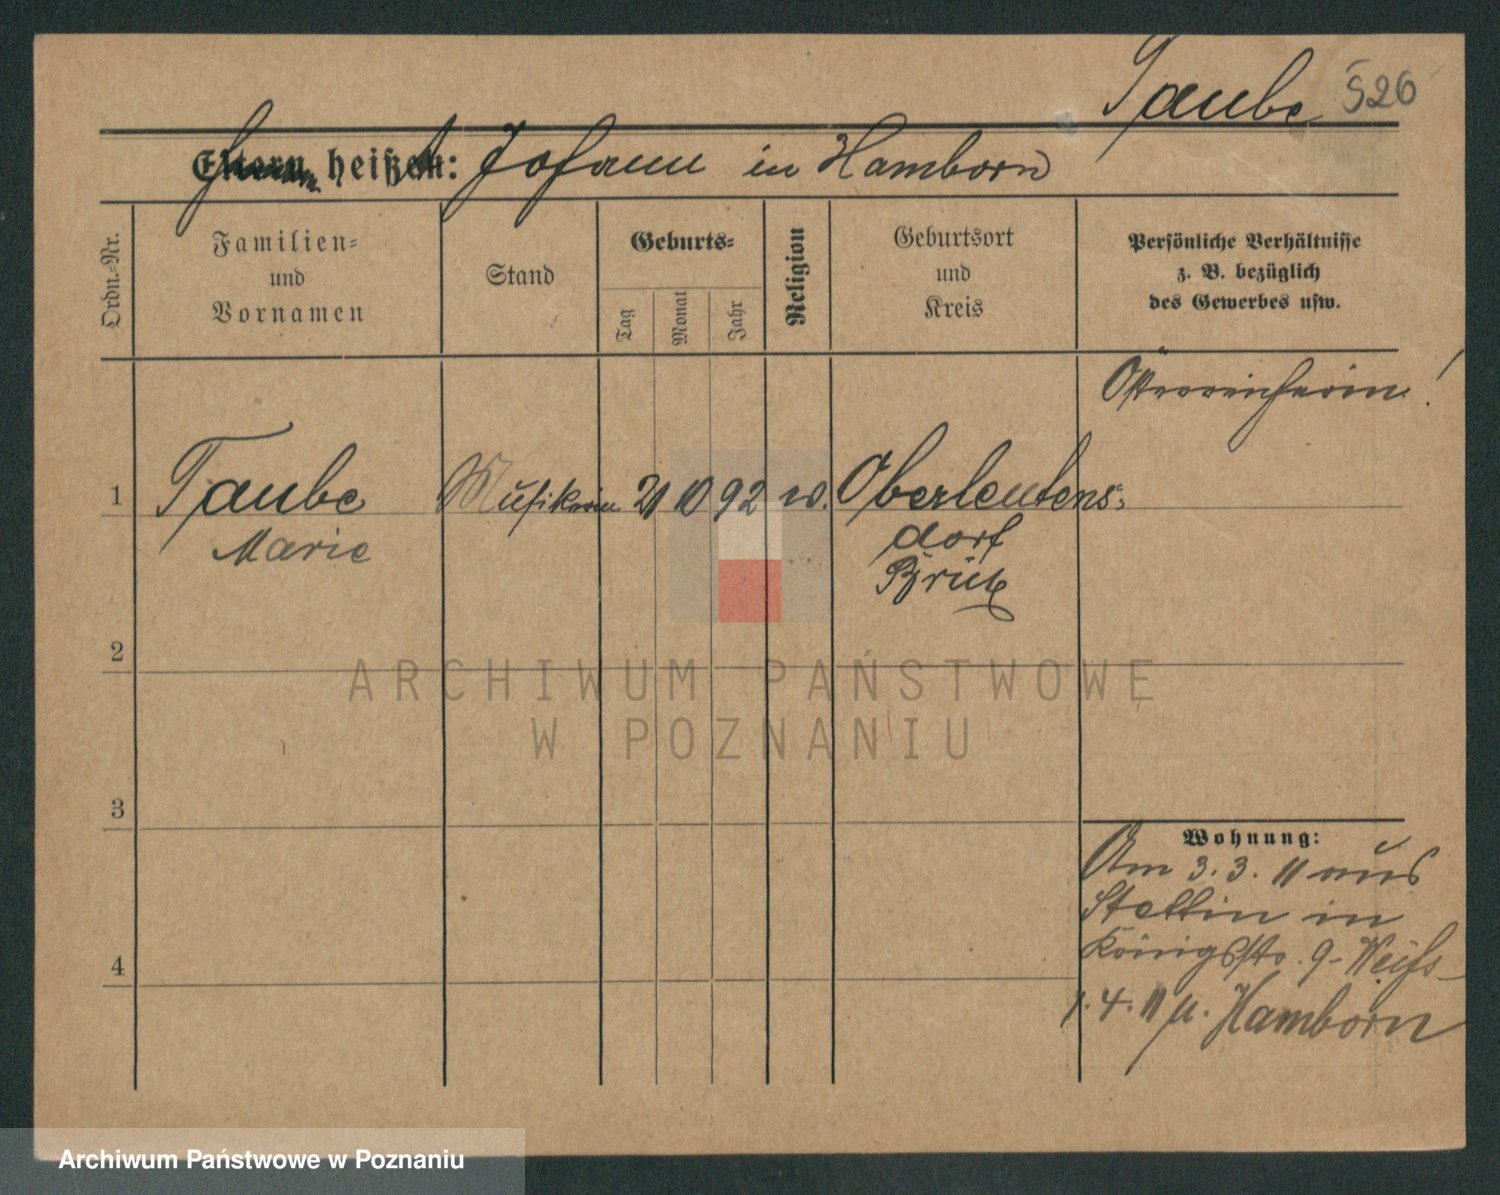 Taube 526
Eltern heißen: Johann in Hamborn
Ordn.-Nr.
Familien-
und
Vornamen
Stand
Geburts-
Tag
Monat
Jahr
Religion
Geburtsort
und
Kreis
Persönliche Verhältnisse
z. B. bezüglich
des Gewerbes usw.
Österreicherin!
1 Taube Musikerin 21 10 92 Oberleutens-
Marie dorf
Brüx
2
3
4
Wohnung:
Am 3.3.11 aus
Stettin in
Königsstr. 9 - Weiß-
1.4.11 n. Hamborn
ARCHIWUM PAŃSTWOWE
W POZNANIU
Archiwum Państwowe w Poznaniu